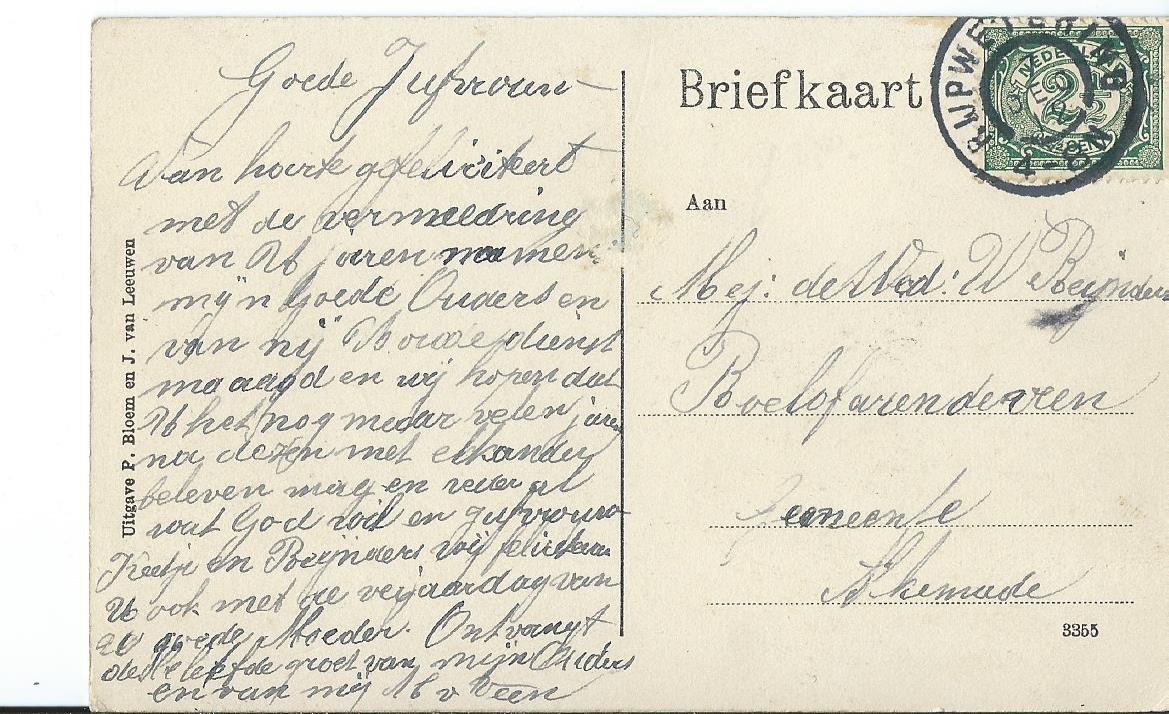 Goede Jufvrouw
Van harte gefeliciteert
met de vermeedring
van Uw jaren namen
mijn Goede Ouders en
van mij U
dienst
maagd en wij hopen dat
U het nog medar velen jaren
na dezen met elkander
beleven mag en veder al
wat God wil en Jufvrouw
Keetje en Beijnders wij feliciteren
U ook met de verjaardag van
uw goede Moeder. Ontvangt
de beleefde groet van mijn Ouders
en van mij M v Veen
Uitgave P. Bloem en J. van Leeuwen
Briefkaart
RIJPWETERING
DEC
4
NEDERLAND
2½
CENT
Aan
Mej: de Wed: W Beijnders
Roelofarendeveen
Gemeente
Alkemade
3355